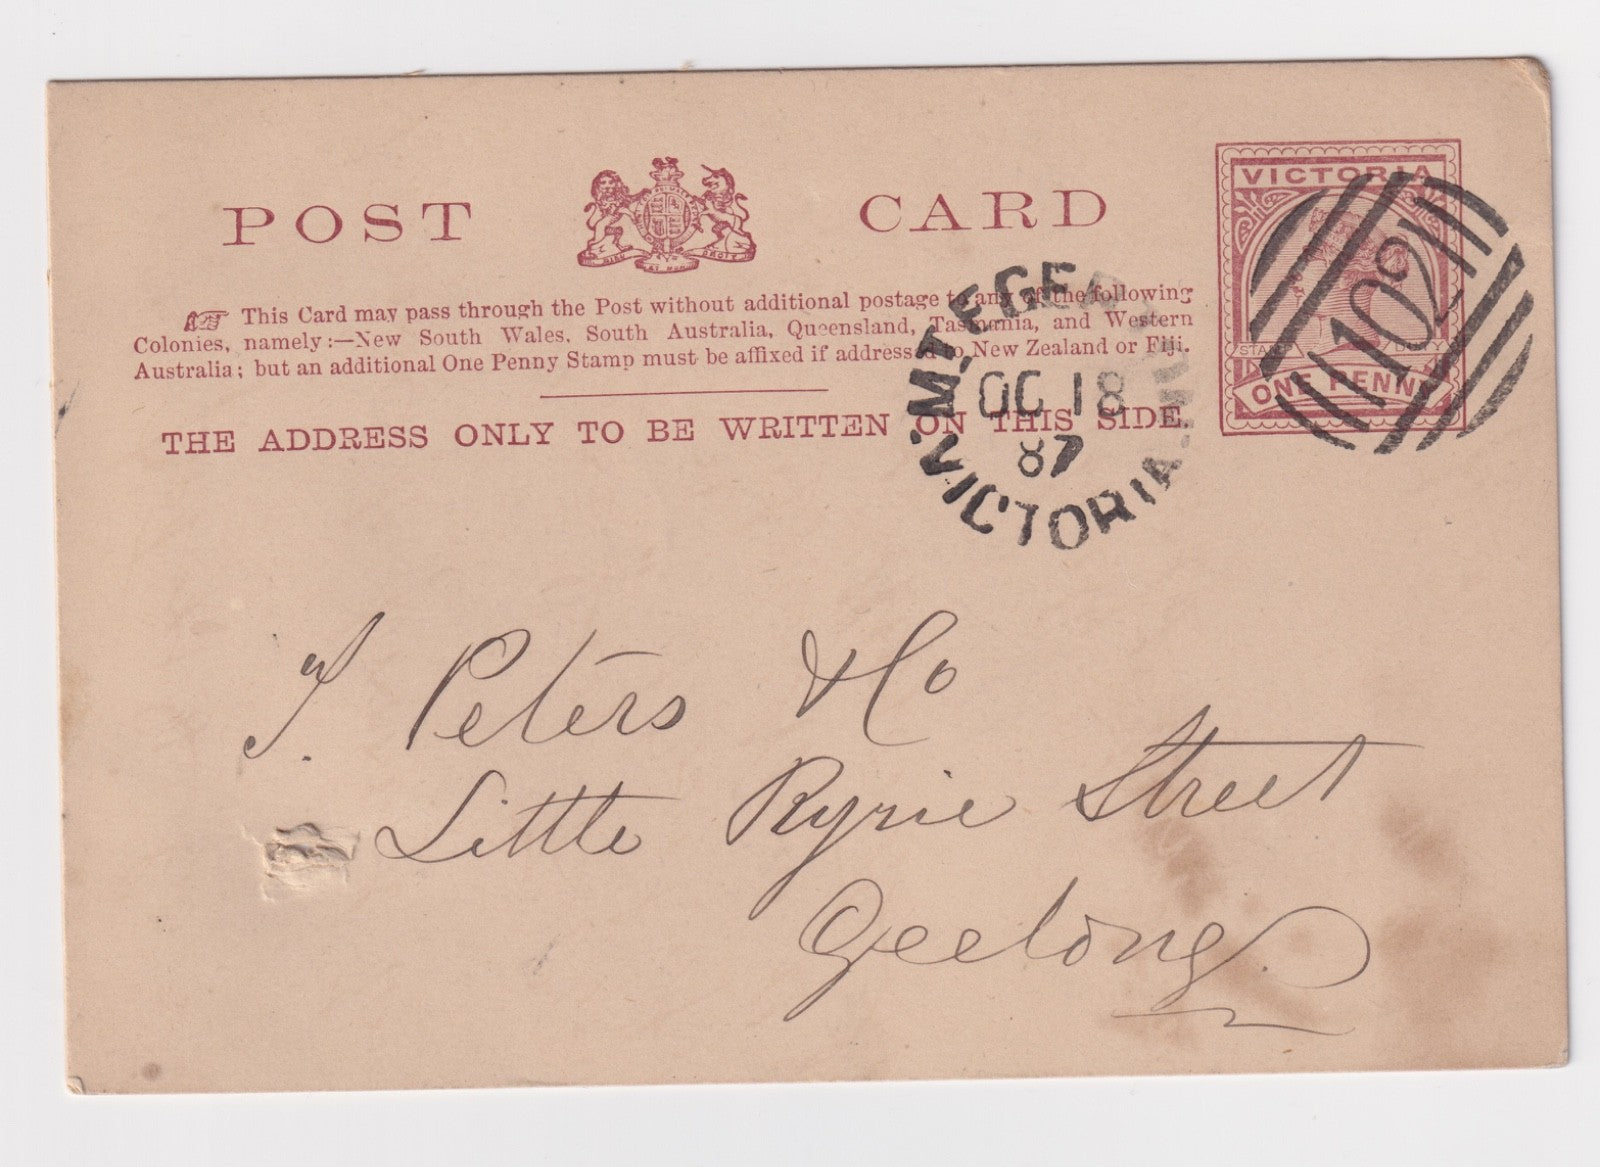 POST CARD
DIEU ET MON DROIT
This Card may pass through the Post without additional postage to any of the following
Colonies, namely:—New South Wales, South Australia, Queensland, Tasmania, and Western
Australia; but an additional One Penny Stamp must be affixed if addressed to New Zealand or Fiji.
THE ADDRESS ONLY TO BE WRITTEN ON THIS SIDE.
VICTORIA
STAMP DUTY
ONE PENNY
102
MT EGER
OC 18
87
VICTORIA
T. Peters & Co
Little Ryrie Street
Geelong.